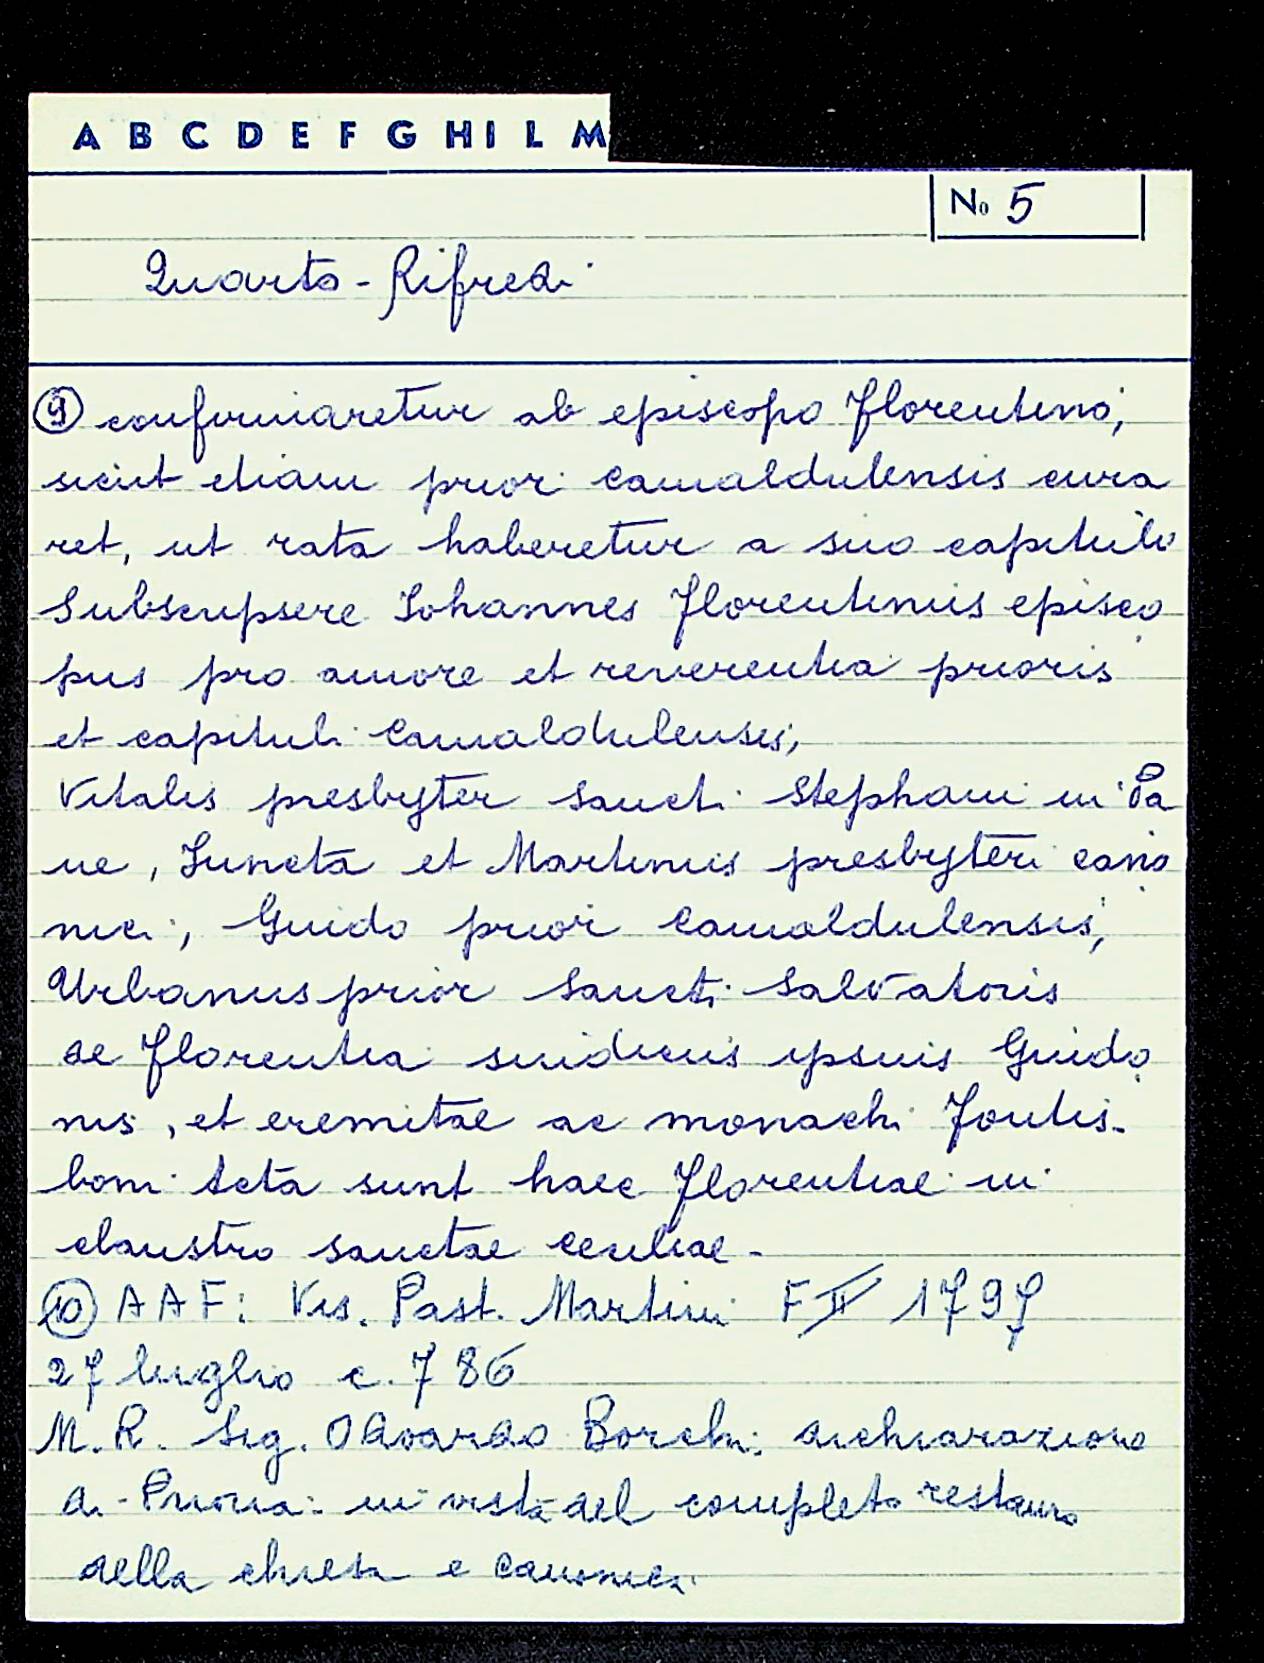 A B C D E F G H I L M
No 5
Quarto - Rifredi
9 confirmaretur ab episcopo florentino,
sicut etiam prior camaldulensis cura
ret, ut rata haberetur a suo capitulo
Subscripsere Iohannes florentinus episco
pus pro amore et reverentia prioris
et capituli Camaldulensis,
Vitalis presbyter Sancti Stephani in Pa
ne, Juncta et Martinus presbyteri cano
nici, Guido prior Camaldulensis,
Urbanus prior Sancti Salvatoris
de florentia sindicus ipsius Guido
nis, et eremitae ac monachi fontis-
boni Acta sunt haec florentiae in
claustro sanctae ceciliae -
10 AAF: Vis. Past. Martini F II 1797
27 luglio c. 786
M. R. Sig. Odoardo Borchi: dichiarazione
di Prioria: in vista del completo restauro
della chiesa e canonica.